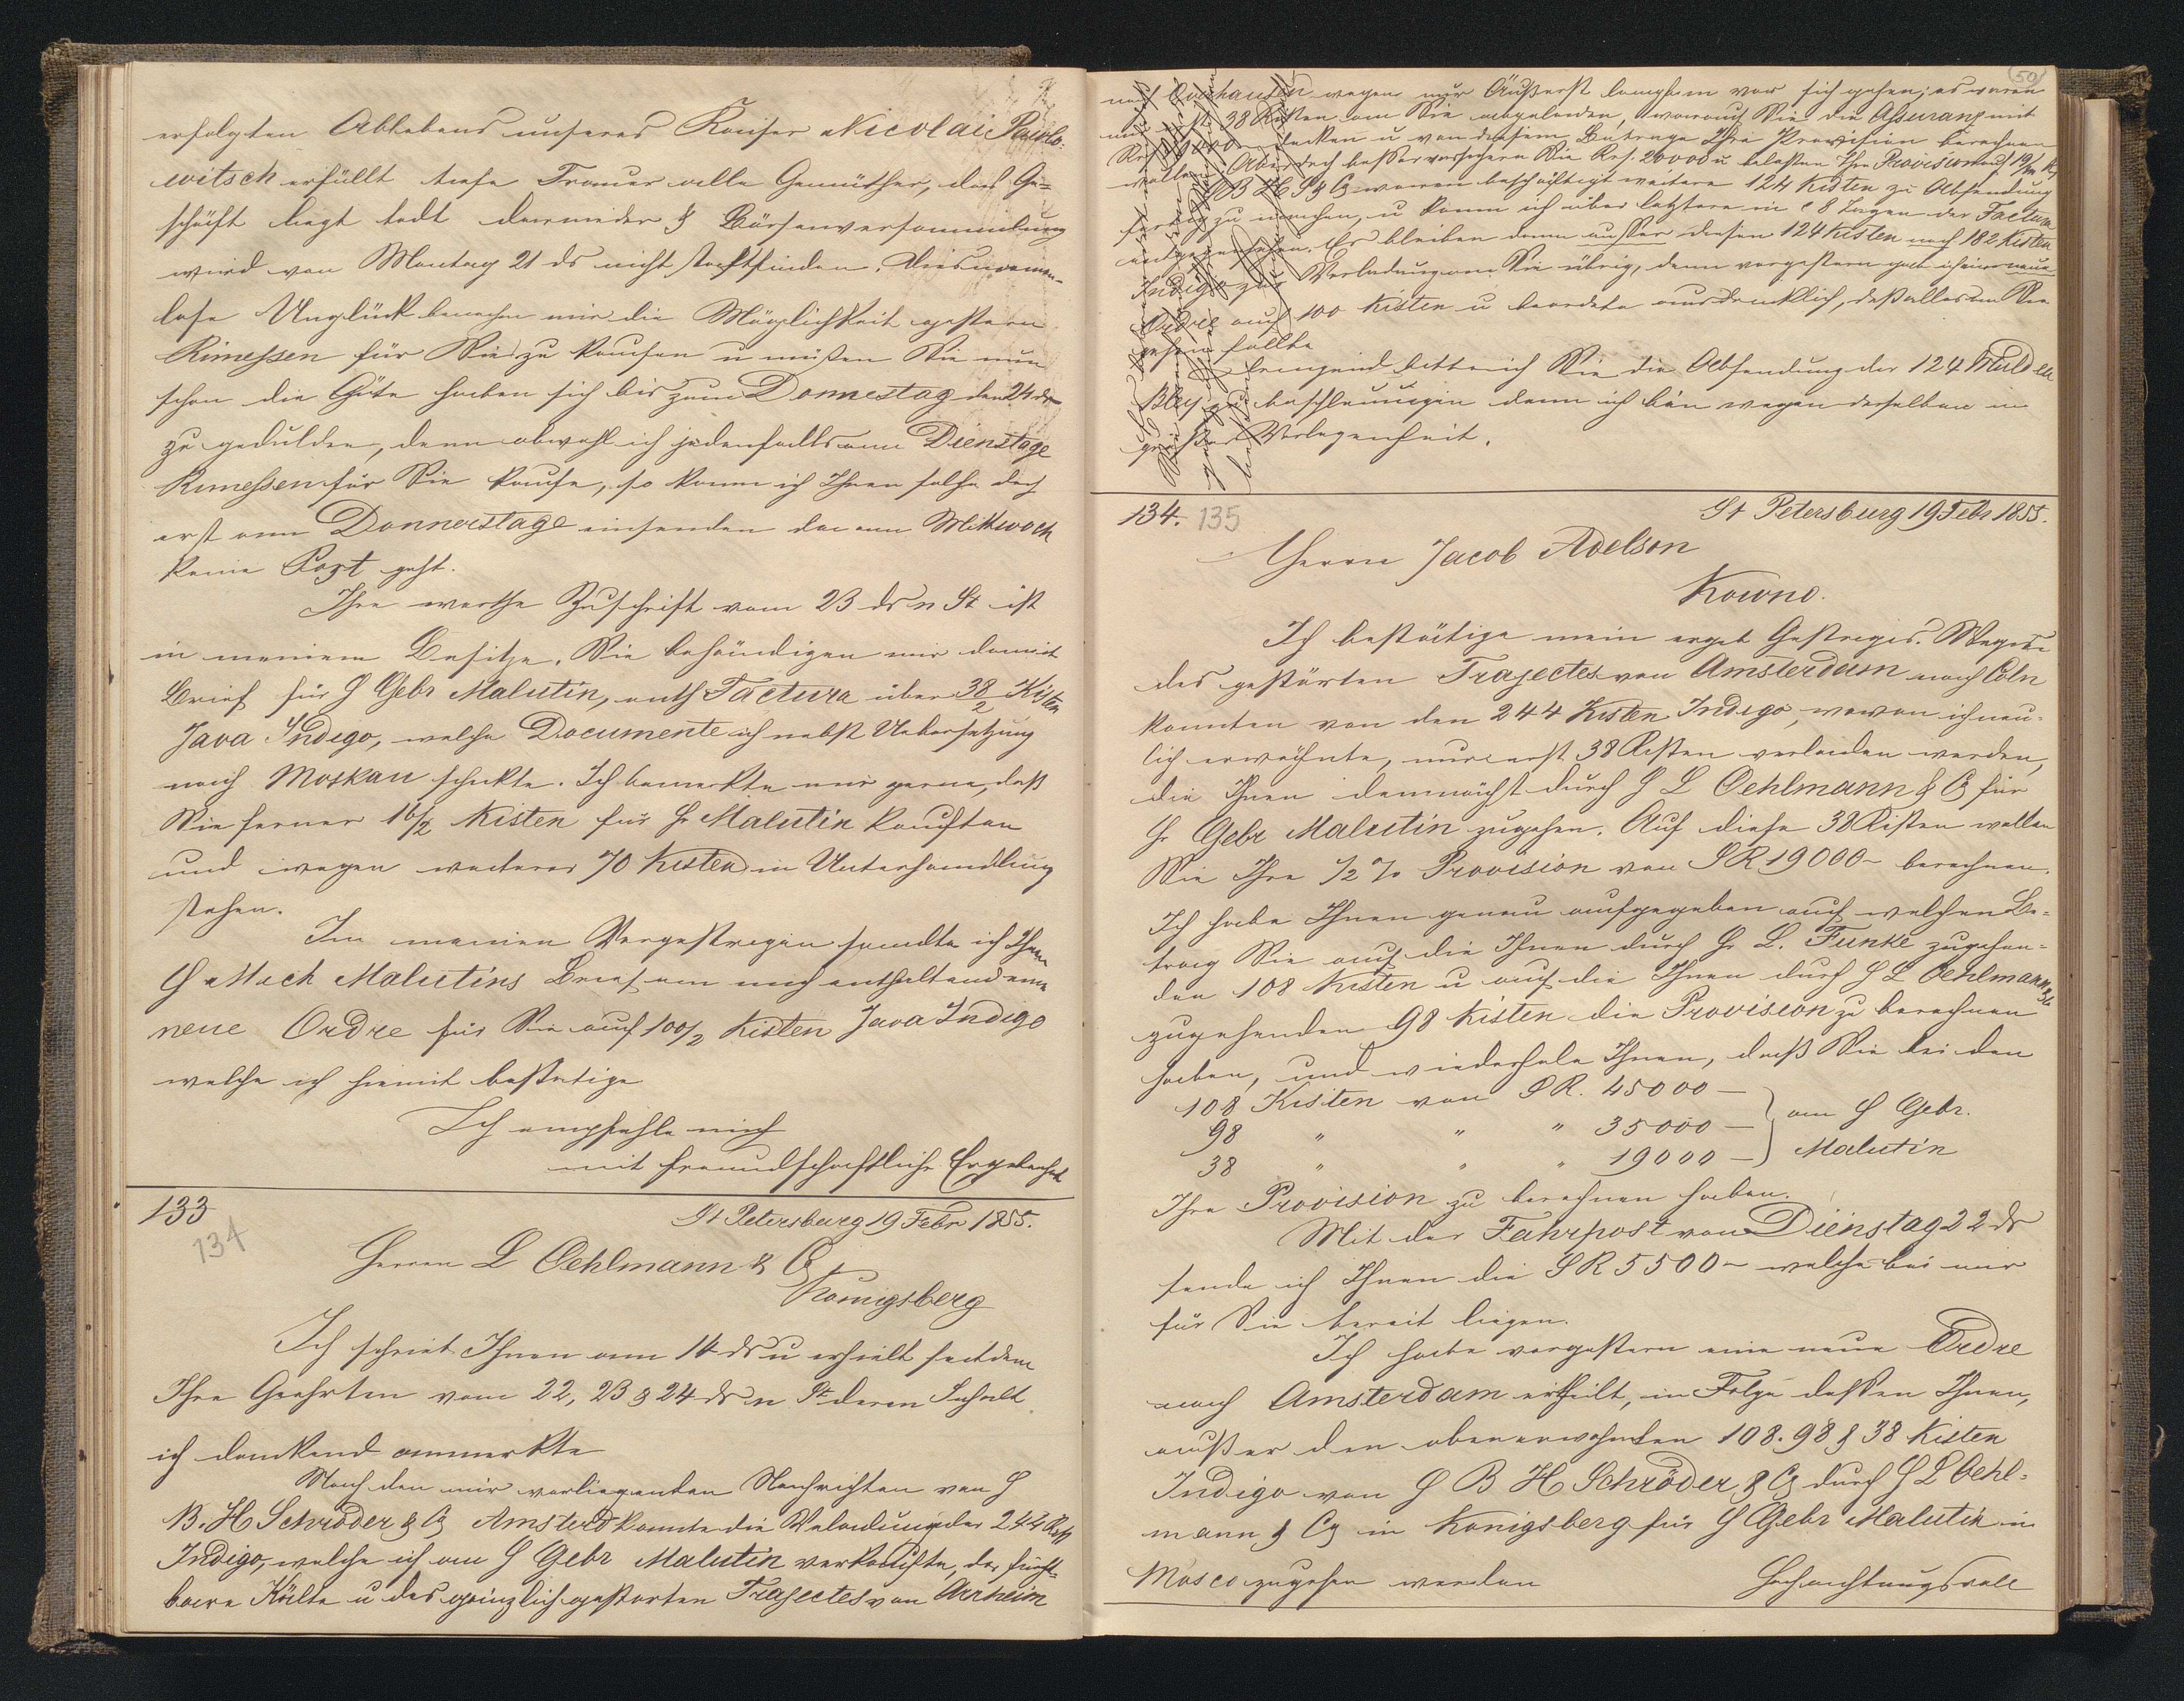 erfolgten Ablebens unseres Kaiser Nicolai Pawlo-
witsch erfüllt tiefe Trauer alle Gemüther, das Ge-
schäft liegt todt darnieder & Börsenversammlung
wird von Montag 21 ds nicht stattfinden. Dies namen-
lose Unglück benahm mir die Möglichkeit gestern
Rimessen für Sie zu kaufen u müßen Sie nun
schon die Güte haben sich bis zum Donnestag den 24 ds
zu gedulden, denn obwohl ich jedenfalls am Dienstage
Rimessen für Sie kaufe, so kann ich Ihnen solche doch
erst am Donnerstage einsenden da am Mittwoch
keine Post geht.
Ihre werthe Zuschrift vom 23 ds n St ist
in meinem Besitze. Sie behändigen mir damit
Brief für H Gebr Malutin, enth Factura über 38/2 Kisten
Java Indigo, welche Documente ich nebst Uebersetzung
nach Moskau schickte. Ich bemerkte mir gerne, daß
Sie ferner 16/2 Kisten für H. Malutin kauften
und wegen weiterer 70 Kisten in Unterhandlung
stehen.
In meinem Vorgestrigen sandte ich Ihnen
H Mich Malutins Brief an mich enthaltend eine
neue Ordre für Sie auf 100/2 Kisten Java Indigo
welche ich hiemit bestätige
Ich empfehle mich
mit freundschaftlicher Ergebenheit
133
134
St Petersburg 19 Febr 1855.
Herren L Oehlmann & Co
Königsberg
Ich schrieb Ihnen am 14 ds u erhielt seitdem
Ihre Geehrten vom 22, 23 & 24 ds n St deren Inhalt
ich dankend anmerkte
Nach den mir vorliegenden Nachrichten von H
B. H Schröder & Co Amsterd konnte die Verladung der 244 Kist
Indigo, welche ich an H Gebr Malutin verkaufte, der furcht-
baren Kälte u des gänzlich gestörten Trajectes von Arnheim
50
nach Overhausen wegen nur Äußerst langsam vor sich gehen; es waren
nur erst 38 Kisten an Sie abgeladen, worauf Sie die Assuranz mit
decken u von diesem Betrage Ihre Provision berechnen
wollen. Aber doch besser versichern Sie Rs. 20000 u belasten Ihre Provision auf
H B H S & Co waren beschäftigt weitere 124 Kisten zu Absendung
fertig zu machen, u kann ich über letztere in 8 Tagen der Factura
entgegensehen. Es bleiben dann ausser diesen 124 Kisten noch 182 Kisten
Indigo zur Verladung an Sie übrig, denn vorgestern gab ich eine neue
Ordre auf 100 Kisten u beordete ausdrücklich, daß alles an Sie
gehen sollte
Dringend bitte ich Sie die Absendung der 124 Muld
Bley zu beschleunigen denn ich bin wegen derselben in
großer Verlegenheit.
134. 135
St Petersburg 19 Febr 1855.
Herrn Jacob Adelson
Kowno.
Ich bestätige mein ergeb Gestriges. Wegen
des gestörten Trajectes von Amsterdam nach Cöln
konnten von den 244 Kisten Indigo, wovon ich neu-
lich erwähnte, nur erst 38 Kisten verladen werden,
die Ihnen demnächst durch H L Oehlmann & Co für
H. Gebr Malutin zugehen. Auf diese 38 Kisten wollen
Sie Ihre 1/2 % Provision von SR 19000 – berechnen.
Ich habe Ihnen genau aufgegeben auf welchen Be-
trag Sie auf die Ihnen durch H. L. Funke zugehen-
den 108 Kisten u auf die Ihnen durch H L Oehlmann & Co
zugehenden 98 Kisten die Provision zu berechnen
haben, und wiederhole Ihnen, daß Sie bei den
108 Kisten von SR. 45000 –
98 " " " 35000 – } an H Gebr.
38 " " " 19000 – } Malutin
Ihre Provision zu berechnen haben.
Mit der Fahrpost von Dienstag 22 ds
sende ich Ihnen die SR 5500 – welche bei mir
für Sie bereit liegen.
Ich habe vorgestern eine neue Ordre
nach Amsterdam ertheilt, in Folge dessen Ihnen,
außer den obenerwähnten 108. 98 & 38 Kisten
Indigo von H B H Schröder & Co durch H L Oehl-
mann & Co in Königsberg für H Gebr Malutin in
Mosco zugehen werden
Hochachtungsvoll